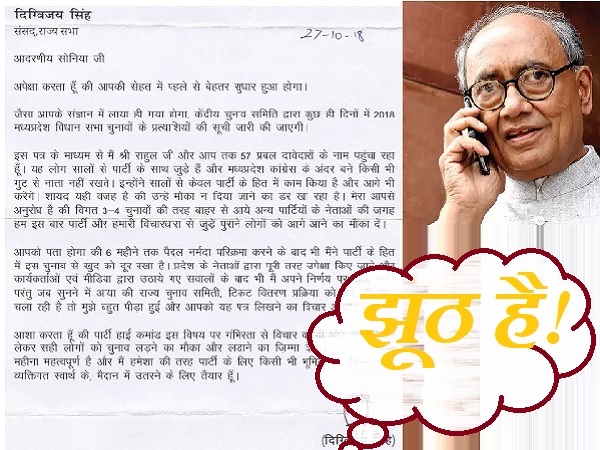 दिग्विजय सिंह
संसद,राज्य सभा
27-10-18
आदरणीय सोनिया जी
अपेक्षा करता हूँ की आपकी सेहत में प्हले से बेहतर सुधार हुआ होगा।
जैसा आपके संज्ञान में लाया ही गया होगा, केंद्रीय चुनाव समिति द्वारा कुछ ही दिनों में 2018
मध्यप्रदेश विधान सभा चुनावों के प्रत्याशियों की सूची जारी की जाएगी।
इस पत्र के माध्यम से मैं श्री राहुल जी और आप तक 57 प्रबल दावेदारों के नाम पहुंचा रहा
हूँ। यह लोग सालों से पार्टी के साथ जुड़े हैं और मध्यप्रदेश कांग्रेस के अंदर बने किसी भी
गुट से नाता नहीं रखते। इन्होंने सालों से केवल पार्टी के हित में काम किया है और आगे भी
करेंगे। शायद यही वजह है की उन्हे मौका न दिया जाने का डर खा रहा है। मेरा आपसे
अनुरोध है की विगत 3-4 चुनावों की तरह बाहर से आये अन्य पार्टियों के नेताओं की जगह
हम इस बार पार्टी और हमारी विचारधारा से जुड़े पुराने लोगों को आगे आने का मौका दें।
आपको पता होगा की 6 महीने तक पैदल नर्मदा परिक्रमा करने के बाद भी मैंने पार्टी के हित
में इस चुनाव से खुद को दूर रखा है। प्रदेश के नेताओं द्वारा पूरी तरह उपेक्षा किए जाने और
कार्यकर्ताओं एवं मीडिया द्वारा उठाये गए सवालों के बाद भी मैं अपने निर्णय पर
परंतु जब सुनने में आया की राज्य चुनाव समिति, टिकट वितरण प्रक्रिया को
चला रही है तो मुझे बहुत पीड़ा हुई और आपको यह पत्र लिखने का विचार
आशा करता हूँ की पार्टी हाई कमांड इस विषय पर गंभिरता से विचार
लेकर सही लोगों को चुनाव लड़ने का मौका और लडाने का ज़िम्मा
महीना महत्वपूर्ण है और मैं हमेशा की तरह पार्टी के लिए किसी भी
व्यक्तिगत स्वार्थ के, मैदान में उतरने के लिए तैयार हूँ।
झूठ है!